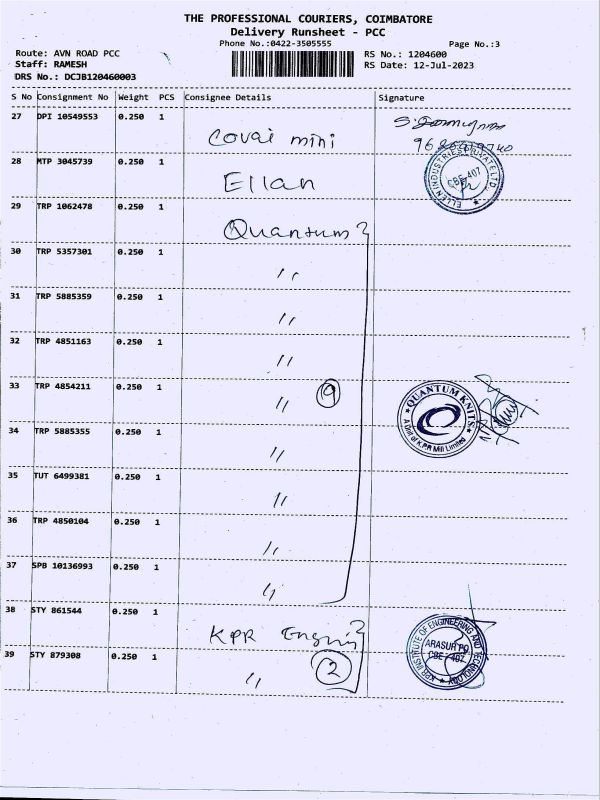 THE PROFESSIONAL COURIERS, COIMBATORE
Delivery Runsheet - PCC
Phone No.:0422-3505555
Page No.:3
Route: AVN ROAD PCC
RS No.: 1204600
Staff: RAMESH
RS Date: 12-Jul-2023
DRS No.: DCJB120460003
S No Consignment No Weight PCS Consignee Details Signature
27 DPI 10549553 0.250 1
Covai mini
28 MTP 3045739 0.250 1
Ellan
ELLEN INDUSTRIES PRIVATE LTD.
CBE-407
29 TRP 1062478 0.250 1
Quantum
30 TRP 5357301 0.250 1
"
31 TRP 5885359 0.250 1
"
32 TRP 4851163 0.250 1
"
33 TRP 4854211 0.250 1
" 9
QUANTUM KNITS
A Unit of K.P.R Mill Limited
34 TRP 5885355 0.250 1
"
35 TUT 6499381 0.250 1
"
36 TRP 4850104 0.250 1
"
37 SPB 10136993 0.250 1
"
38 STY 861544 0.250 1
KPR
KPR INSTITUTE OF ENGINEERING AND TECHNOLOGY
ARASUR PO
CBE - 407
39 STY 879308 0.250 1
" 2